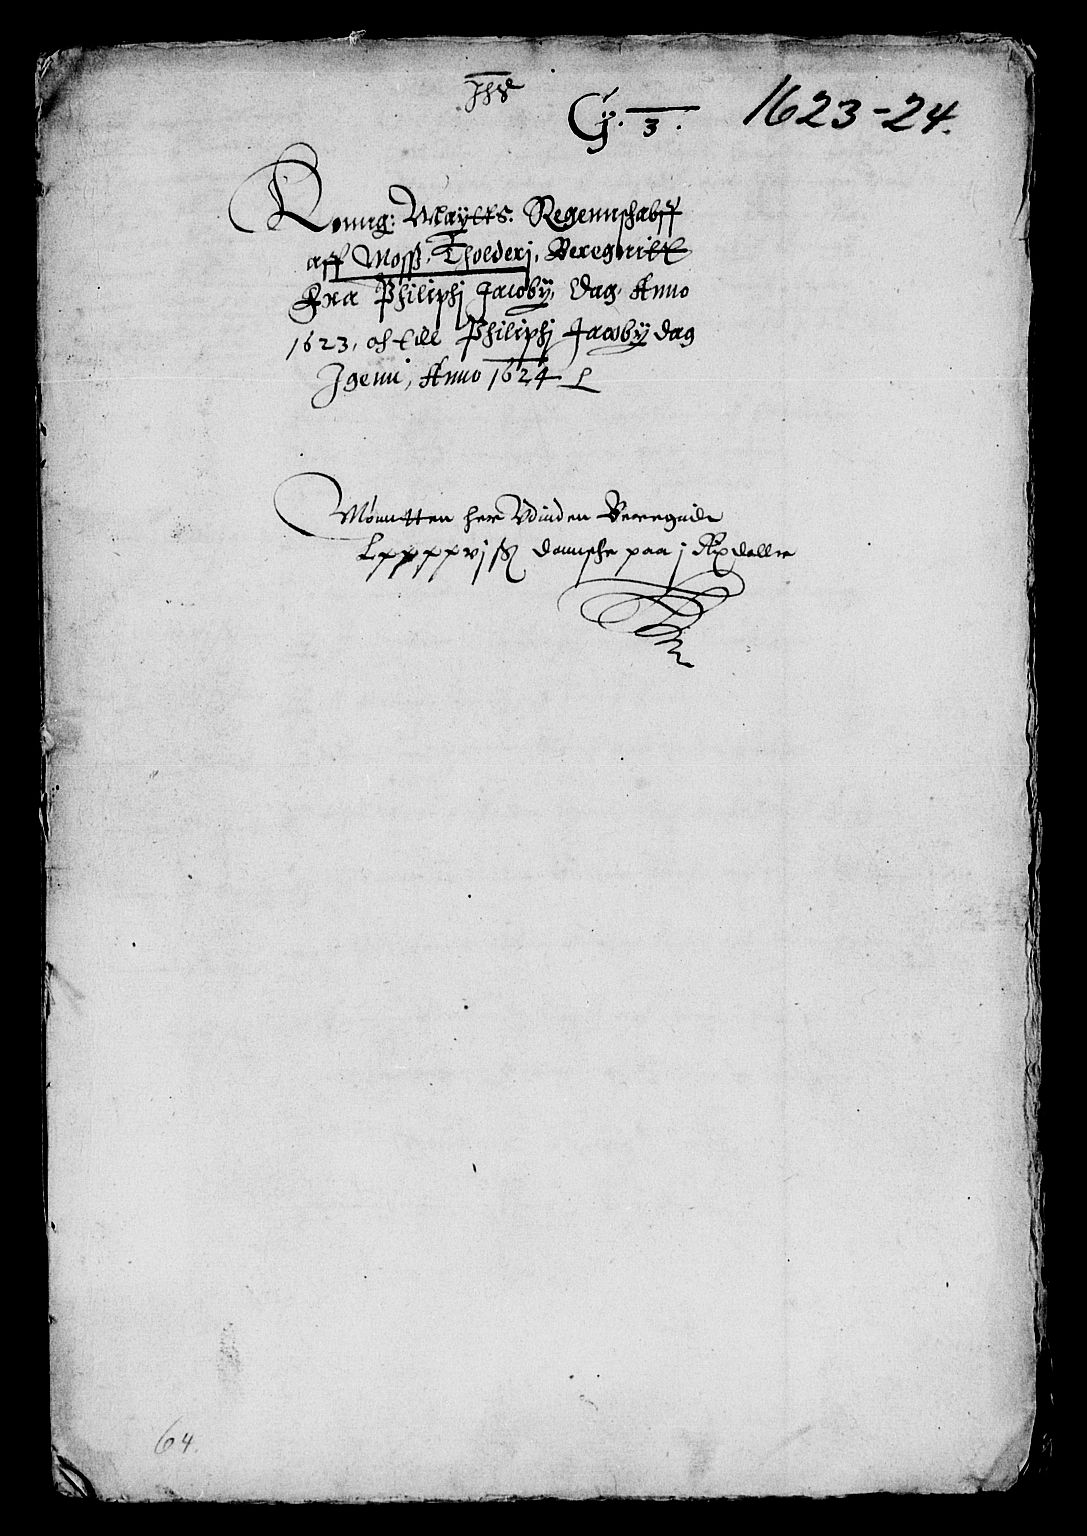 Jhs
Cÿ. 3.
1623-24.
Konng: Maÿtts: Regennschabff
aff Moss, Tholderj, Beregnitt
Fra Philiphj Jacobÿ, Dag, Anno
1623, och till Philiphj Jacobÿ dag
Igenn, Anno 1624
Mønntten her Vdinden Beregnidt
Lxxxxvj ß dannsche paa j Rixdaller
64.